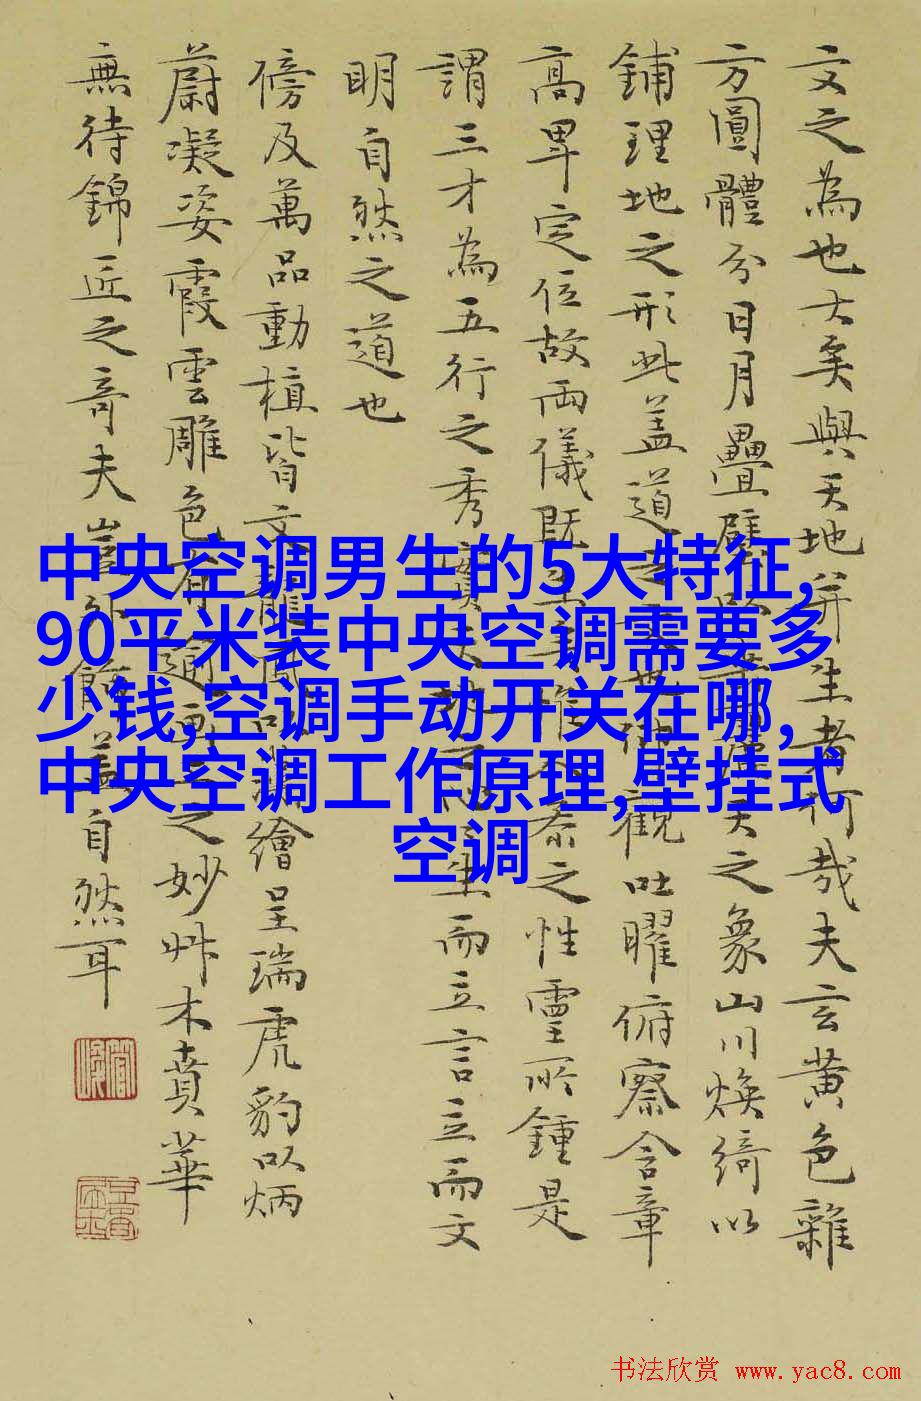 文之為也大矣與天地并生者何哉夫玄黄色雜
方圓體分日月疊璧以垂麗天之象山川煥綺以
鋪理地之形此盖道之文也仰觀吐曜俯察含章
高卑定位故兩儀既生矣惟人参之性靈所鍾是
謂三才為五行之秀實天地之心生而立言立而文
明自然之道也
傍及萬品動植皆文龍鳳以藻繪呈瑞虎豹以炳
蔚凝姿霞雲雕色有逾畫工之妙艸木賁華
無待錦匠之奇夫豈外飾盖自然耳
中央空调男生的5大特征,
90平米装中央空调需要多
少钱,空调手动开关在哪,
中央空调工作原理,壁挂式
空调
书法欣赏 www.yac8.com